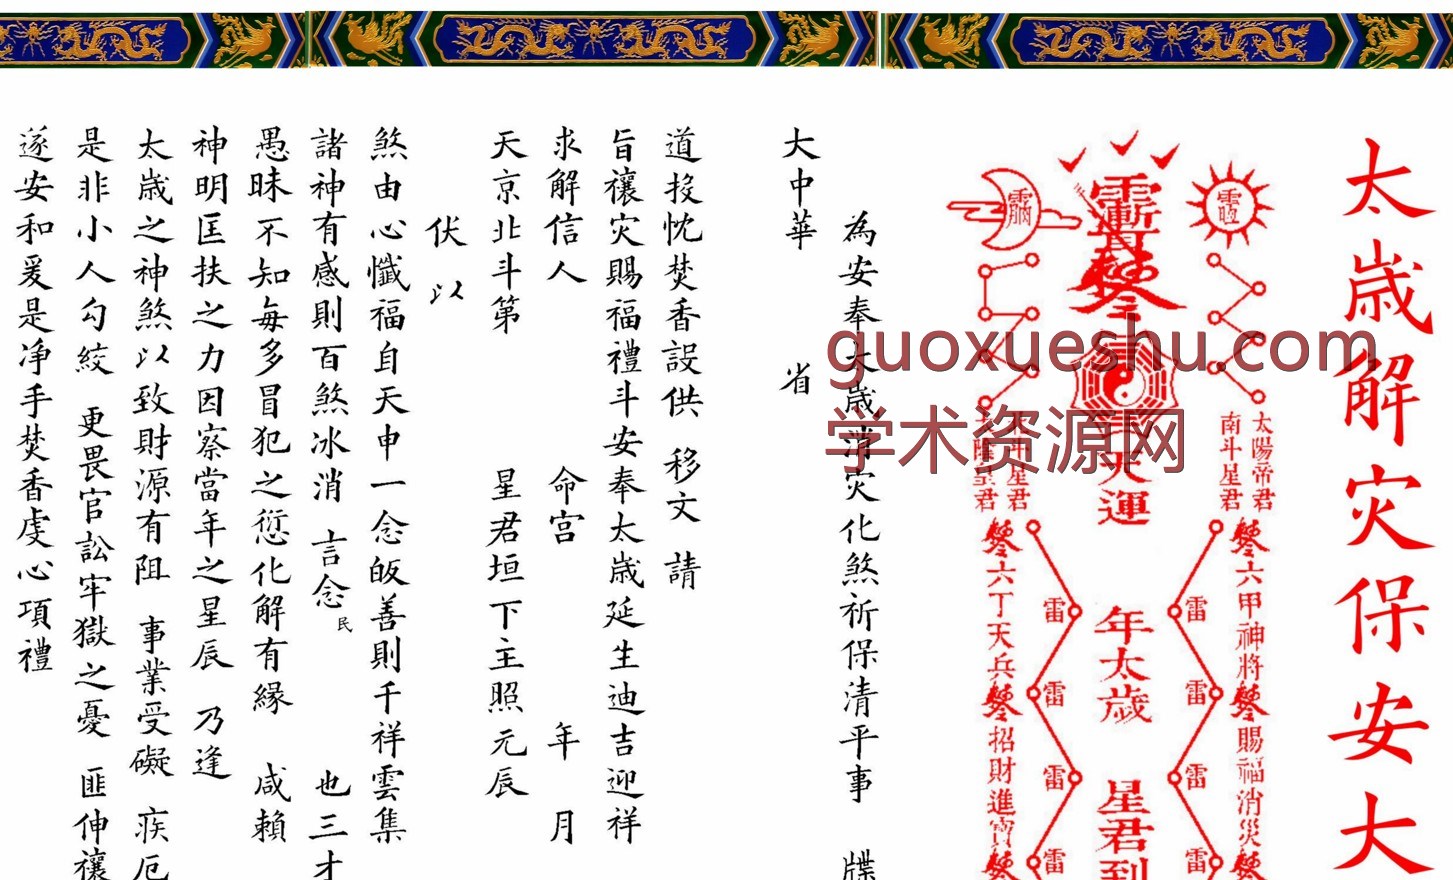 太歲解灾保安大
太陽帝君
南斗星君
六甲神將
賜福消災
雷
雷
雷
雷
天運
年太歲
星君到
六丁天兵
招財進寶
雷
雷
雷
雷
為安奉太歲消灾化煞祈保清平事 牒
大中華 省
道投忱焚香設供 移文 請
旨禳灾賜福禮斗安奉太歲延生迪吉迎祥
求解信人 命宫 年 月
天京北斗第 星君垣下主照元辰
伏以
煞由心懺福自天申一念皈善則千祥雲集
諸神有感則百煞冰消 言念民 也三才
愚昧不知每多冒犯之愆化解有緣 咸賴
神明匡扶之力因察當年之星辰 乃逢
太歲之神煞以致財源有阻 事業受礙 疾厄
是非小人勾絞 更畏官訟牢獄之憂 匪伸禳
遂安和爰是净手焚香虔心項禮
guoxueshu.com
学术资源网